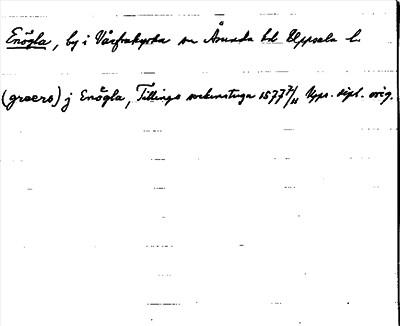 Enögla, by i Vårfrukyrka sn Åsunda hd Uppsala l.
(greers) j Enögla, Tillinge sockenstuga 1577 7/11 Upps. dipl. orig.